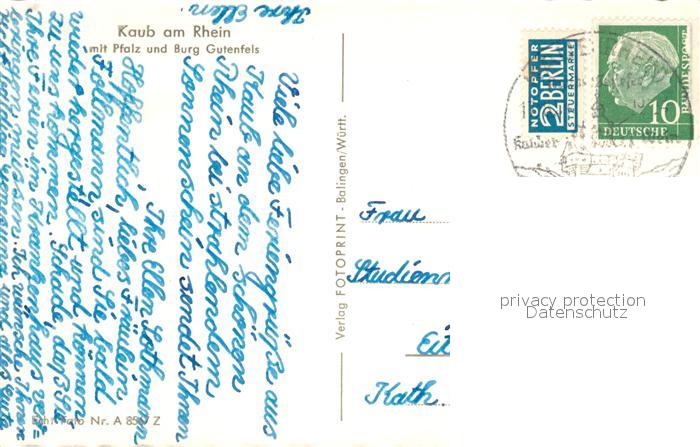 Kaub am Rhein
mit Pfalz und Burg Gutenfels
Viele liebe Feriengrüße aus
Kaub an dem schönen
Rhein bei strahlendem
Sonnenschein sendet Ihnen
Ihre Ellen Lothmann
Hoffentlich, liebes Fräulein
sind Sie bald
wieder hergestellt und können
zu uns kommen. Schade, daß Sie
Ihre Ferien im Krankenhaus ver-
Ich wünsche Ihnen
und alles Gute
Ihre Ellen.
Verlag FOTOPRINT - Balingen/Württ.
Foto Nr. A 8567 Z
NOTOPFER
2 BERLIN
STEUERMARKE
10
DEUTSCHE
BUNDESPOST
Kauber
Frau
Studienr
Eit
Kath.
privacy protection
Datenschutz